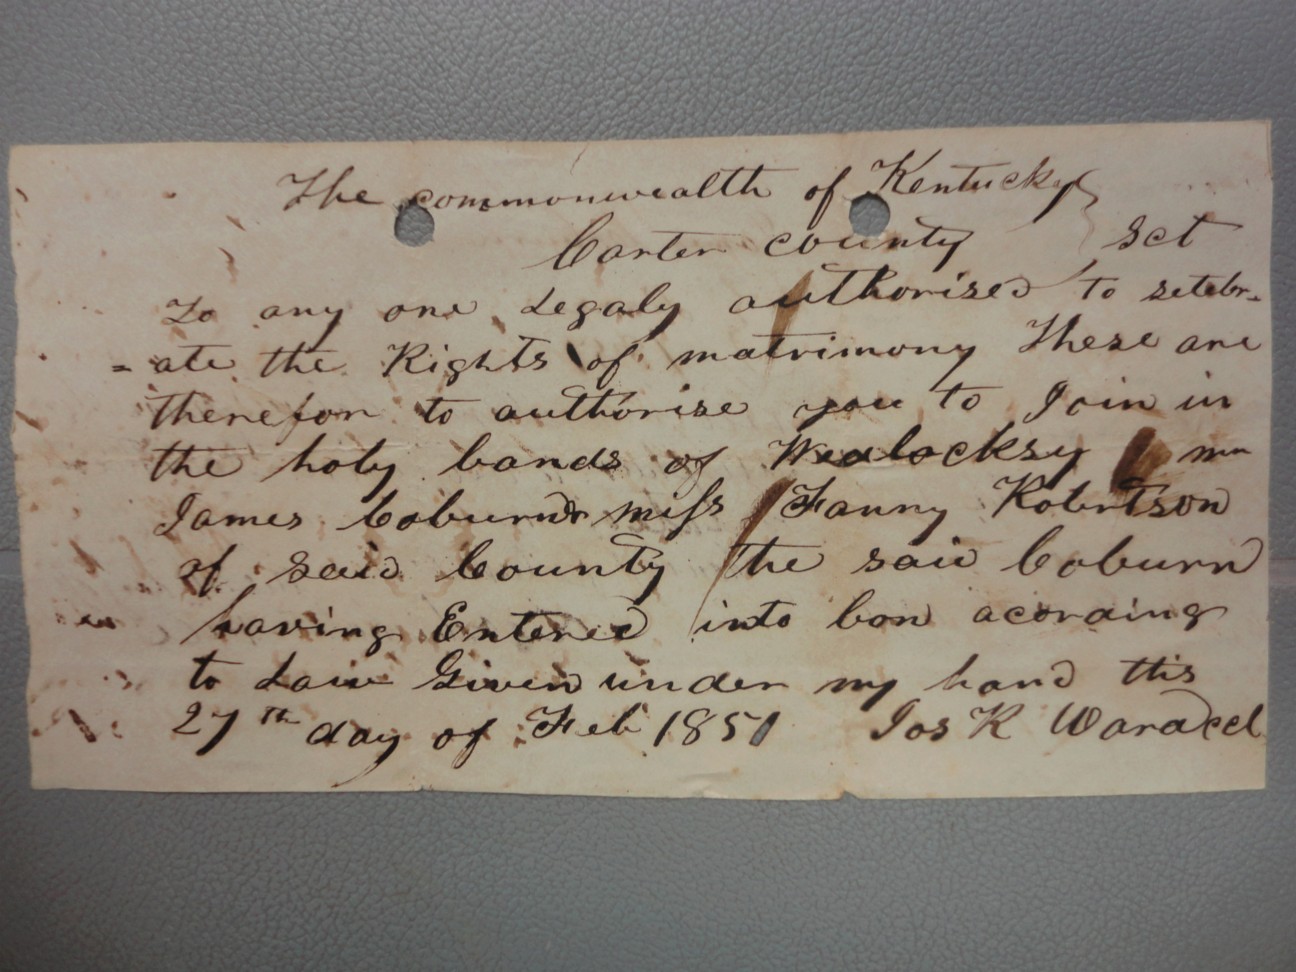 The commonwealth of Kentucky }
Carter county } Sct
To any one Legaly authorised to selebr-
= ate the Rights of matrimony These are
therefor to authorise you to Join in
the holy bands of Wedlock
James Coburn & miss Fanny Robertson
of said County the said Coburn
having Entered into bon acording
to Law Given under my hand this
27th day of Feb 1851 Jos K Ward ccl